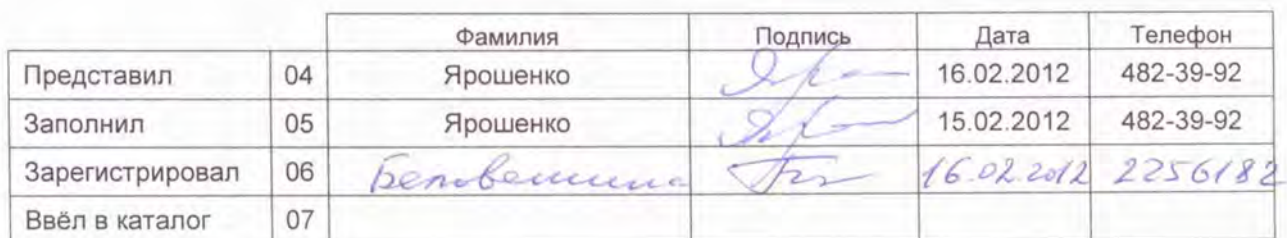 Фамилия Подпись Дата Телефон
Представил 04 Ярошенко 16.02.2012 482-39-92
Заполнил 05 Ярошенко 15.02.2012 482-39-92
Зарегистрировал 06 16.02.2012 2256182
Ввёл в каталог 07